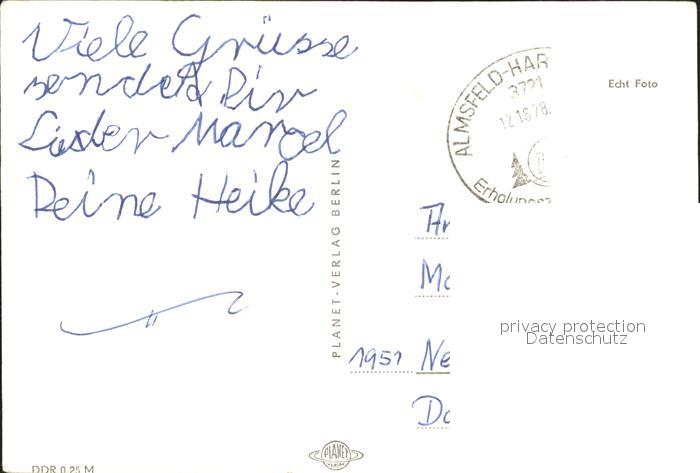 Viele Grüsse
sendet Dir
Lieber Marcel
Deine Heike
PLANET-VERLAG BERLIN
ALMSFELD-HAR
3721
12.10.78.
Erholungsz
Echt Foto
An
Ma
1951 Ne
Do
privacy protection
Datenschutz
PLANET
DDR 0,25 M